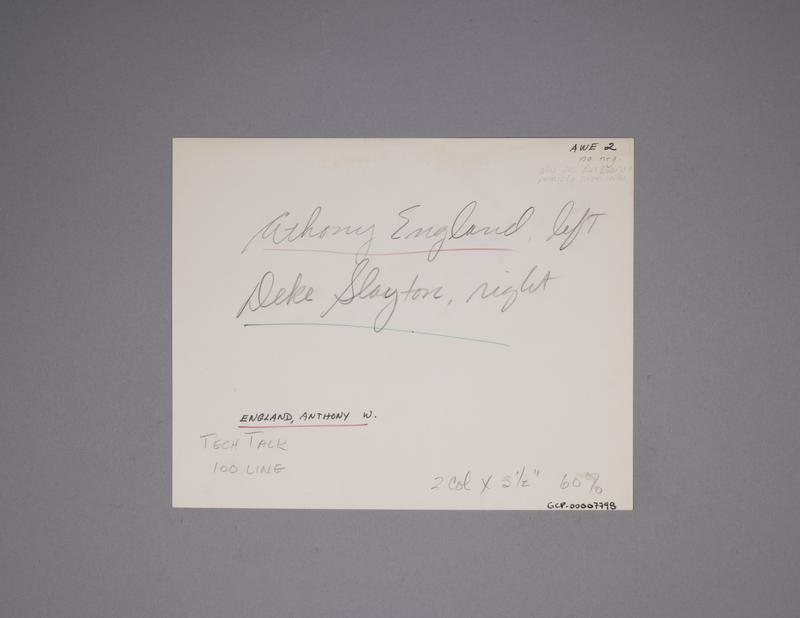 AWE 2
no neg.
Athony England, left
Deke Slayton, right
ENGLAND, ANTHONY W.
TECH TALK
100 LINE
2 Col X 3 1/2" 60%
GCP-00007798